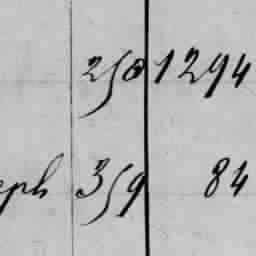 250 1294
eph 359 84